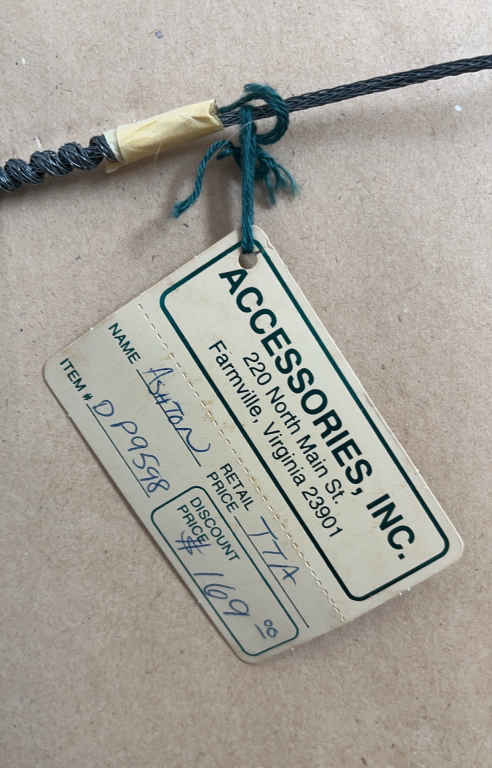 ACCESSORIES, INC.
220 North Main St.
Farmville, Virginia 23901
NAME ASHTON
RETAIL
PRICE TTA
ITEM # DP9598
DISCOUNT
PRICE
$169 00